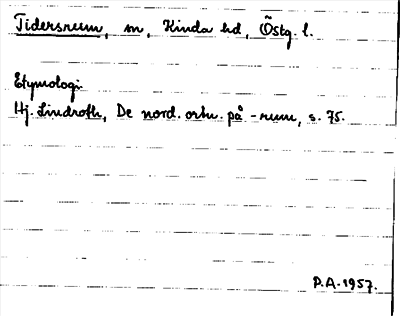 Tidersrum, sn, Kinda hd, Östg. l.
Etymologi
Hj. Lindroth, De nord. ortn. på -rum, s. 75.
P.A. 1957.